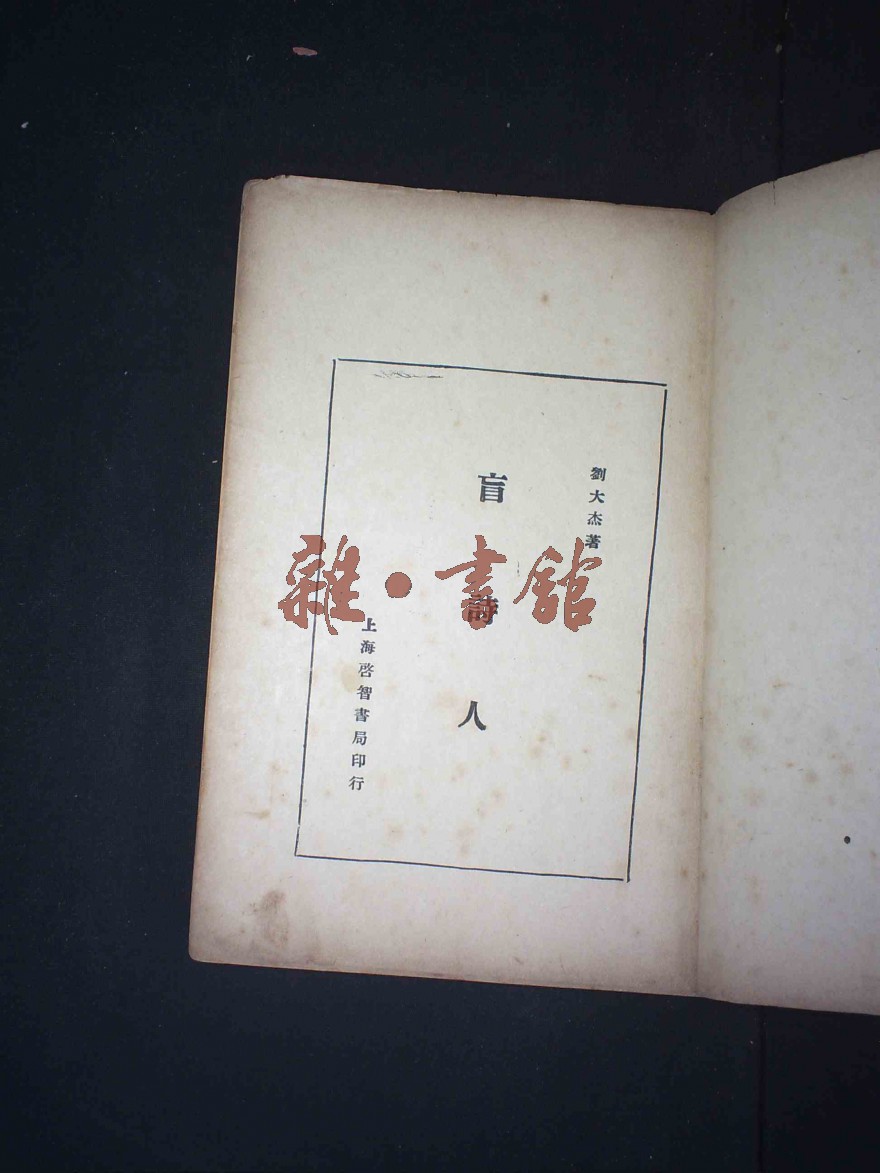 劉大杰著
盲詩人
上海啓智書局印行
雜·書館